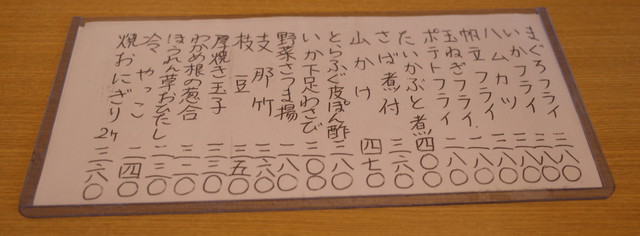 まぐろフライ
いかフライ
ハムカツ
帆立フライ
玉ねぎフライ 二八〇
ポテトフライ 二八〇
たいかぶと煮 四〇〇
さば煮付 三六〇
山かけ 四七〇
とらふぐ皮ぽん酢 三八〇
いか下足わさび 三〇〇
野菜さつま揚 二八〇
支那竹 二六〇
枝豆 三五〇
厚焼き玉子 三三〇
わかめ根の葱合 三二〇
ほうれん草おひたし 二三〇
冷やっこ 二四〇
焼おにぎり 2ケ 三六〇